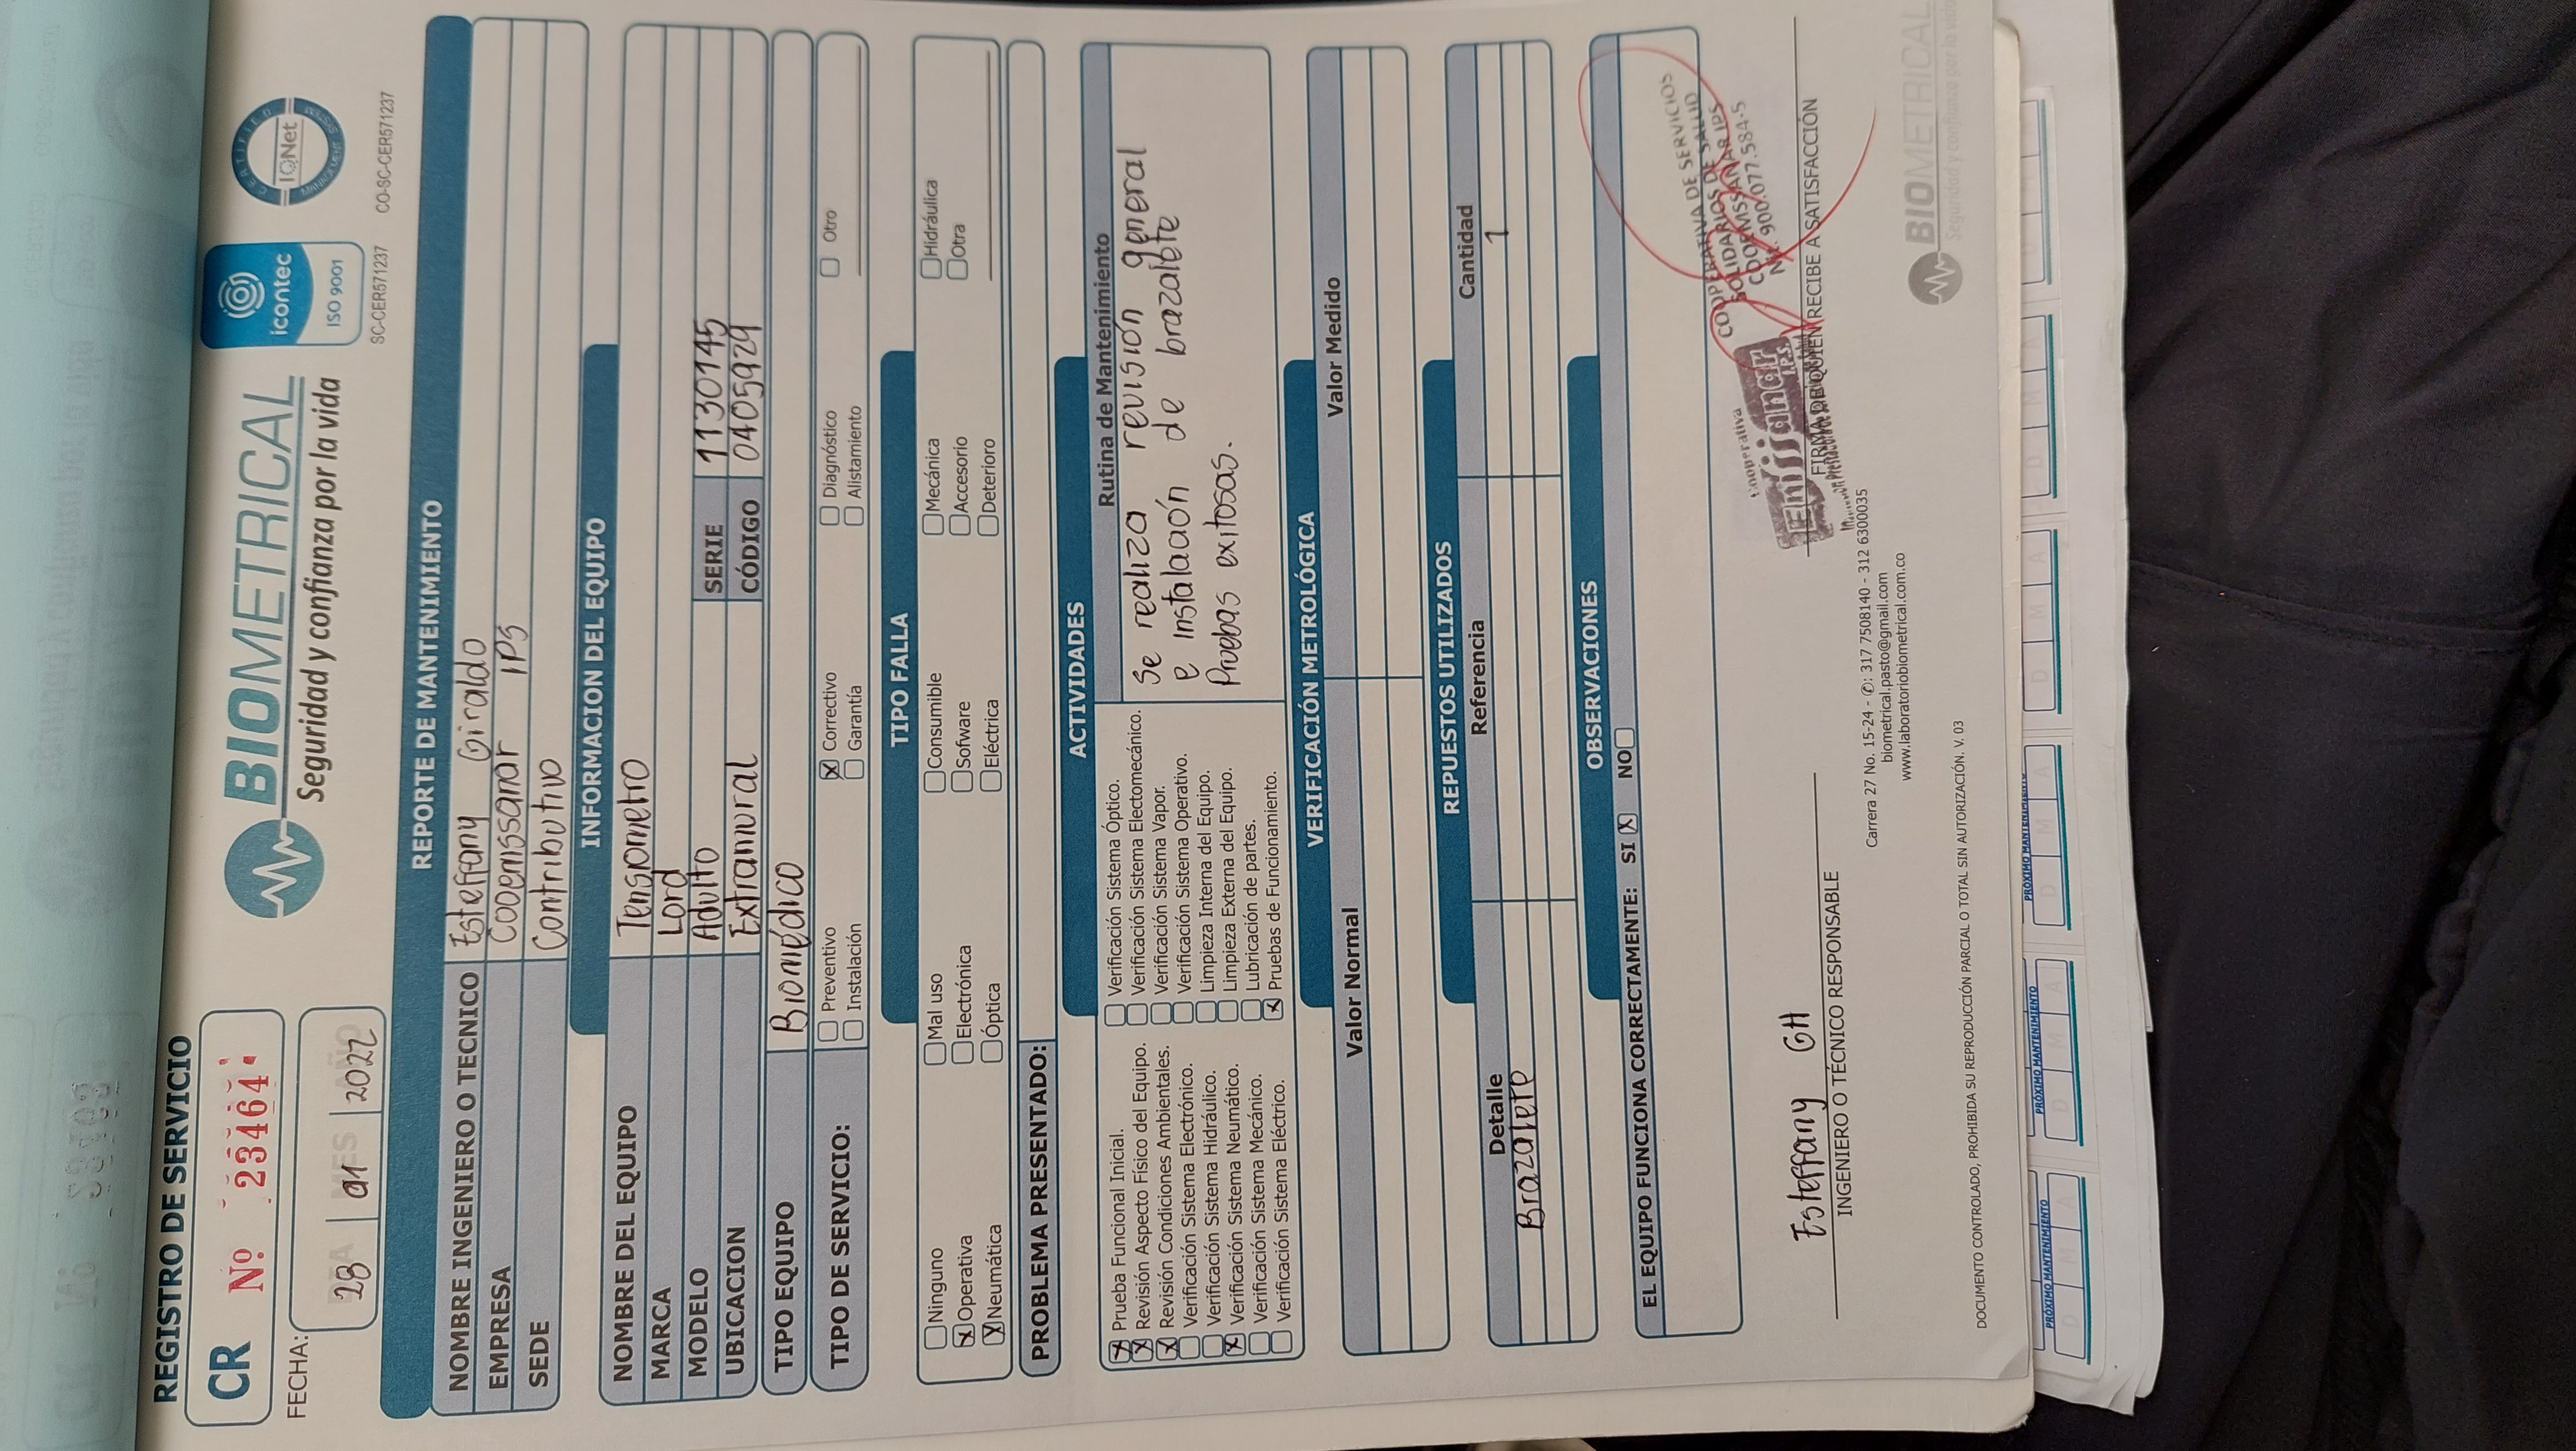 REGISTRO DE SERVICIO
CR Nº 23464
FECHA:
28 01 2022
BIOMETRICAL
Seguridad y confianza por la vida
icontec
ISO 9001
SC-CER571237
CERTIFIED
IQNet
MANAGEMENT SYSTEM
CO-SC-CER571237
REPORTE DE MANTENIMIENTO
NOMBRE INGENIERO O TECNICO Esteffany Giraldo
EMPRESA Cooemssanar IPS
SEDE Contributivo
INFORMACION DEL EQUIPO
NOMBRE DEL EQUIPO Tensiometro
MARCA Lord
MODELO Adulto SERIE 1130145
UBICACION Extramural CÓDIGO 0405929
TIPO EQUIPO Biomédico
TIPO DE SERVICIO:
Preventivo X Correctivo Diagnóstico Otro
Instalación Garantía Alistamiento
TIPO FALLA
Ninguno Mal uso Consumible Mecánica Hidráulica
X Operativa Electrónica Sofware Accesorio Otra
X Neumática Óptica Eléctrica Deterioro
PROBLEMA PRESENTADO:
ACTIVIDADES
X Prueba Funcional Inicial.
X Revisión Aspecto Físico del Equipo.
X Revisión Condiciones Ambientales.
Verificación Sistema Electrónico.
Verificación Sistema Hidráulico.
X Verificación Sistema Neumático.
Verificación Sistema Mecánico.
Verificación Sistema Eléctrico.
Verificación Sistema Óptico.
Verificación Sistema Electomecánico.
Verificación Sistema Vapor.
Verificación Sistema Operativo.
Limpieza Interna del Equipo.
Limpieza Externa del Equipo.
Lubricación de partes.
X Pruebas de Funcionamiento.
Rutina de Mantenimiento
Se realiza revisión general
e instalación de brazalete
Pruebas exitosas.
VERIFICACIÓN METROLÓGICA
Valor Normal Valor Medido
REPUESTOS UTILIZADOS
Detalle Referencia Cantidad
Brazalete 1
OBSERVACIONES
EL EQUIPO FUNCIONA CORRECTAMENTE: SI X NO
COOPERATIVA DE SERVICIOS
SOLIDARIOS DE SALUD
COOEMSSANAR IPS
Nit. 900.077.584-5
Cooperativa
Emssanar
I.P.S.
Esteffany GH
INGENIERO O TÉCNICO RESPONSABLE
FIRMA DE QUIEN RECIBE A SATISFACCIÓN
Carrera 27 No. 15-24 - ✆: 317 7508140 - 312 6300035
biometrical.pasto@gmail.com
www.laboratoriobiometrical.com.co
BIOMETRICAL
Seguridad y confianza por la vida
DOCUMENTO CONTROLADO, PROHIBIDA SU REPRODUCCIÓN PARCIAL O TOTAL SIN AUTORIZACIÓN. V. 03
PRÓXIMO MANTENIMIENTO PRÓXIMO MANTENIMIENTO PRÓXIMO MANTENIMIENTO
D M A D M A D M A D M A D M A